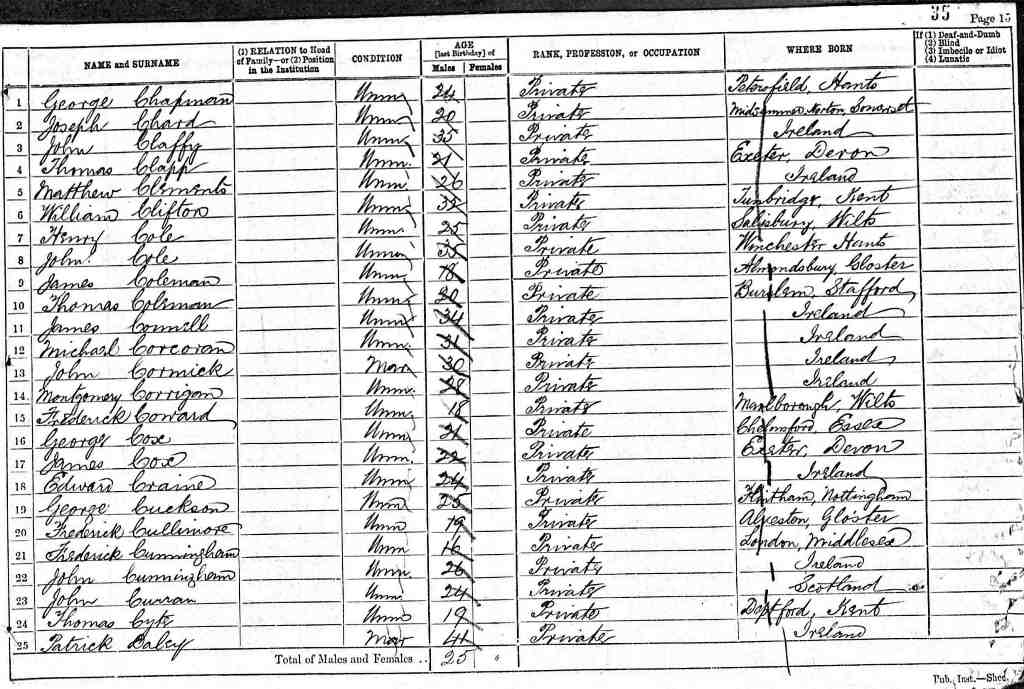 35 Page 15
NAME and SURNAME (1) RELATION to Head of Family—or (2) Position in the Institution CONDITION AGE [last Birthday] of Males Females RANK, PROFESSION, or OCCUPATION WHERE BORN If (1) Deaf-and-Dumb (2) Blind (3) Imbecile or Idiot (4) Lunatic
1 George Chapman Unm 24 Private Petersfield, Hants
2 Joseph Chard Unm 20 Private Midsummer Norton, Somerset
3 John Claffy Unm 35 Private Ireland
4 Thomas Clapp Unm. 21 Private Exeter, Devon
5 Matthew Clements Unm. 26 Private Ireland
6 William Clifton Unm 32 Private Tunbridge, Kent
7 Henry Cole Unm. 25 Private Salisbury, Wilts
8 John Cole Unm 35 Private Winchester Hants
9 James Coleman Unm 18 Private Almondsbury, Gloster
10 Thomas Coleman Unm 20 Private Burslem, Stafford
11 James Connell Unm 34 Private Ireland
12 Michael Corcoran Unm. 31 Private Ireland
13 John Cormick Mar 30 Private Ireland
14 Montgomery Corrigan Unm. 28 Private Ireland
15 Frederick Coward Unm 18 Private Marlborough, Wilts
16 George Cox Unm 21 Private Chelmsford, Essex
17 James Cox Unm. 22 Private Exeter, Devon
18 Edward Craine Unm. 24 Private Ireland
19 George Cuckson Unm 25 Private Flintham, Nottingham
20 Frederick Cullimore Unm 19 Private Alveston, Gloster
21 Frederick Cunningham Unm 16 Private London, Middlesex
22 John Cunningham Unm. 26 Private Ireland
23 John Curran Unm. 24 Private Scotland
24 Thomas Cyte Unm 19 Private Deptford, Kent
25 Patrick Daley Mar 41 Private Ireland
Total of Males and Females .. 25 "
Pub. Inst.—Shed.